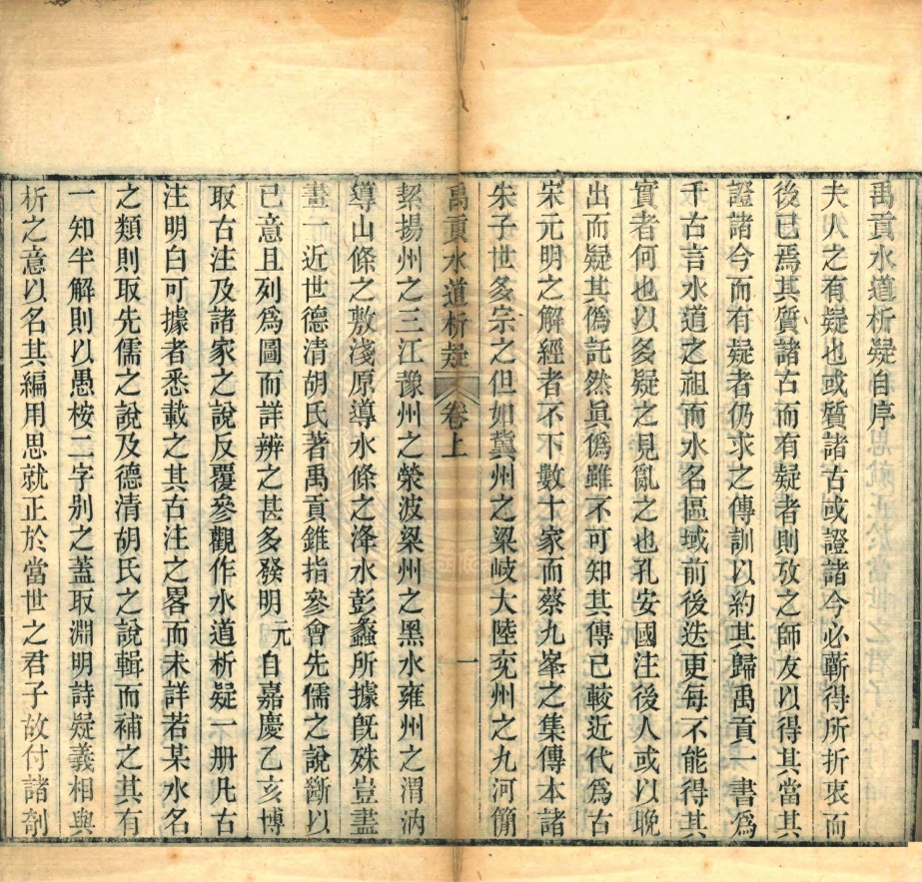 禹貢水道析疑自序
夫人之有疑也或質諸古或證諸今必蘄得所折衷而
後已焉其質諸古而有疑者則攷之師友以得其當其
證諸今而有疑者仍求之傳訓以約其歸禹貢一書爲
千古言水道之祖而水名區域前後迭更每不能得其
實者何也以多疑之見亂之也孔安國注後人或以晚
出而疑其僞託然眞僞雖不可知其傳已較近代爲古
宋元明之解經者不下數十家而蔡九峯之集傳本諸
朱子世多宗之但如冀州之梁岐大陸兖州之九河簡
禹貢水道析疑 卷上 一
絜揚州之三江豫州之滎波梁州之黑水雍州之渭汭
導山條之敷淺原導水條之洚水彭蠡所據旣殊豈盡
畫一近世德清胡氏著禹貢錐指參會先儒之說斷以
已意且列爲圖而詳辨之甚多發明元自嘉慶乙亥博
取古注及諸家之說反覆參觀作水道析疑一册凡古
注明白可據者悉載之其古注之畧而未詳若某水名
之類則取先儒之說及德清胡氏之說輯而補之其有
一知半解則以愚桉二字别之蓋取淵明詩疑義相與
析之意以名其編用思就正於當世之君子故付諸剞